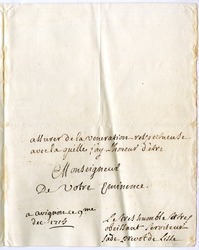 assurer de la veneration respectueuse
avec la quelle j'ay l'honeur d'être
Monseigneur
De Votre Eminence.
a avignon ce 9me
dec 1714
Le très humble et très
obeissant serviteur
de Lisle